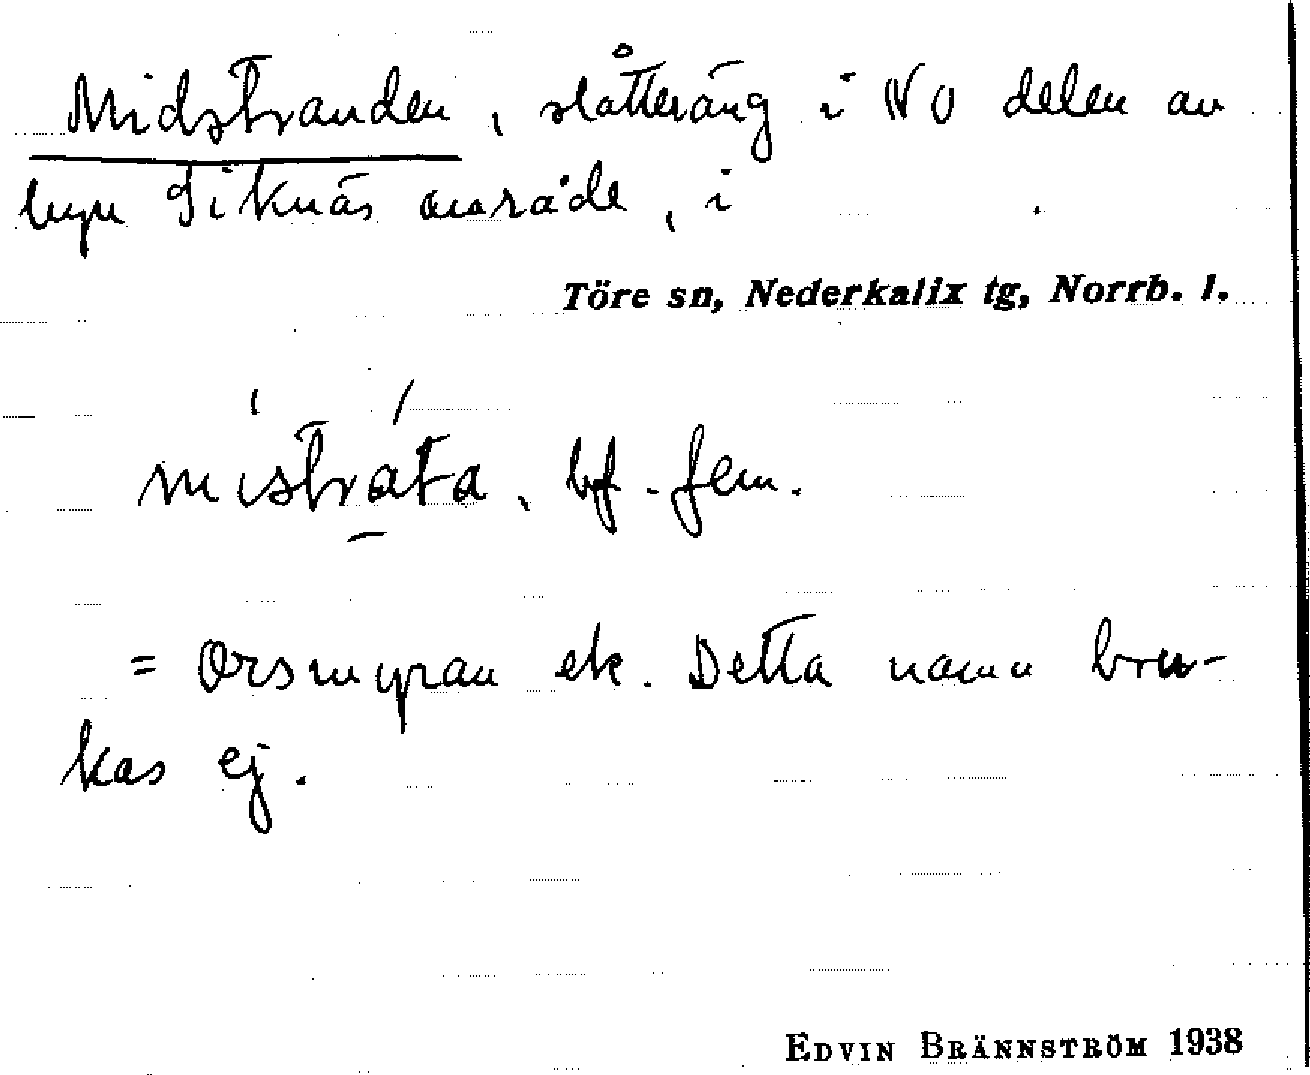 Midstranden, slåtteräng i NO delen av
byn Siknäs område, i
Töre sn, Nederkalix tg, Norrb. l.
mistrata, bf. fem.
= Orsmyran etc. Detta namn bru-
kas ej.
EDVIN BRÄNNSTRÖM 1938